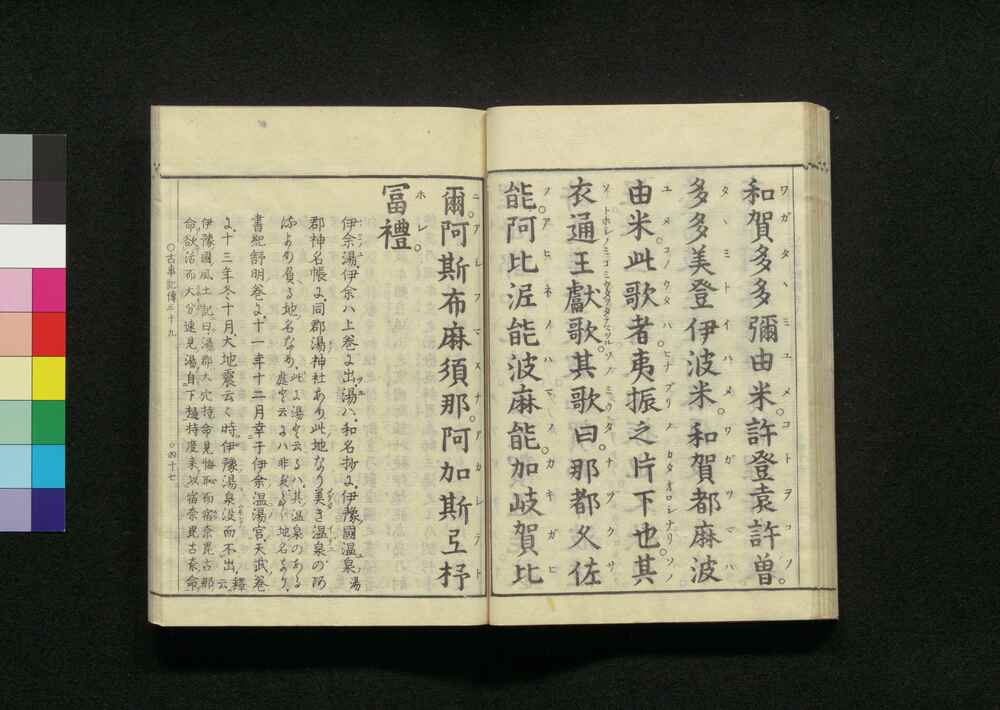 和賀多多彌由米許登袁許曾
多多美登伊波米和賀都麻波
由米此歌者夷振之片下也其
衣通王獻歌其歌曰那都久佐
能阿比泥能波麻能加岐賀比
爾阿斯布麻須那阿加斯弖杼
富禮
伊余湯伊余ハ上巻に出湯ハ和名抄に伊豫國温泉湯
郡神名帳に同郡湯神社あり此地なり美き温泉の
書紀舒明巻に十一年十二月幸于伊余温湯宮天武巻
に十三年冬十月大地震云々時伊豫湯泉没而不出云
伊豫國風土記曰湯郡大穴持命見悔恥而宿奈毘古那
命欲活而大分速見湯自下樋持度來以宿奈毘古奈命
○古事記傳三十九
○四十七